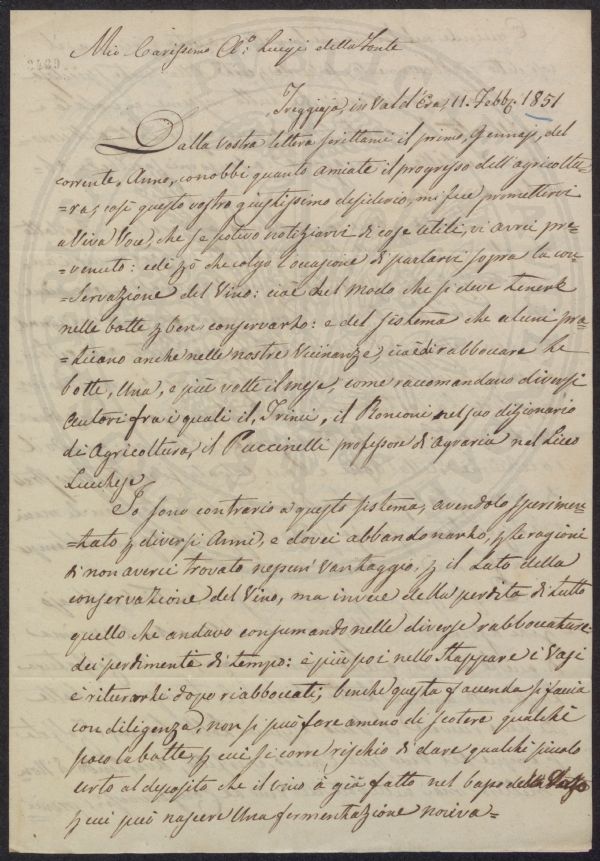 Mio Carissimo A.o Luigi della Fonte
2489
Treggiaja, in Val d'Era, 11. Febb.o 1851
Dalla vostra lettera scrittami il primo, Gennajo, del
corrente, Anno, conobbi quanto amiate il progresso dell'agricoltu=
=ra; così questo vostro giustissimo desiderio, mi fece promettervi
a Viva Voce, che se potevo notiziarvi di cose utili, vi avrei pre=
=venuto: ed è p.ò che colgo l'occasione di parlarvi sopra la con=
=servazione del Vino: cioè del modo che si deve tenere
nelle botte p ben conservarlo: e del sistema che alcuni pra=
=ticano anche nelle nostre Vicinanze, cioè di rabboccare le
botte, Una, o più volte il mese, come raccomandano diversi
Autori fra i quali il, Trinci, il Ronconi nel suo dizionario
di Agricoltura, il Puccinelli professore di Agraria nel Liceo
Lucchese
Io sono contrario a questo sistema, avendolo sperimen=
=tato p diversi Anni, e dovei abbandonarlo, p le ragioni
di non averci trovato nessun Vantaggio, p il lato della
conservazione del Vino, ma invece della perdita di tutto
quello che andavo consumando nelle diverse rabboccature
dei perdimente di tempo: e più poi nello Stappare i Vasi
e riturarli dopo riabboccati; benchè questa facenda si faccia
con diligenza, non si può fare ameno di scotere qualche
poco la botte, p cui si corre rischio di dare qualche piccolo
urto al deposito che il vino à già fatto nel basso del Vaso
p cui può nascere Una fermentazione nociva=